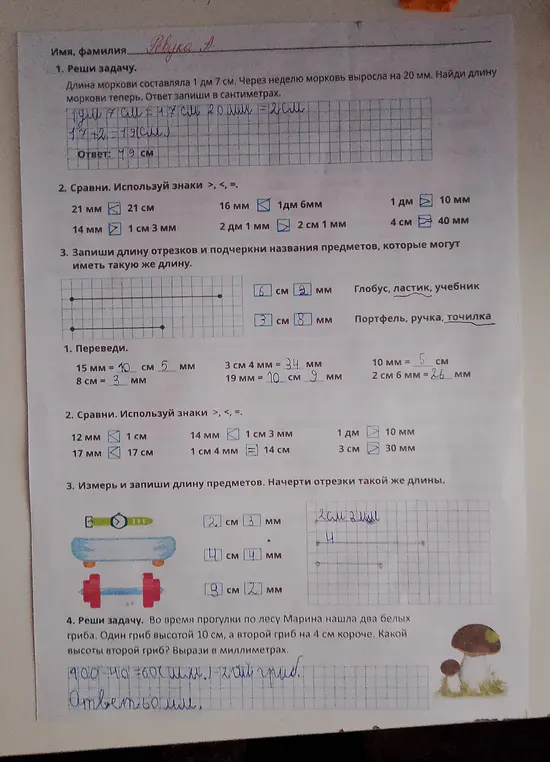 Имя, фамилия Рябука А.
1. Реши задачу.
Длина моркови составляла 1 дм 7 см. Через неделю морковь выросла на 20 мм. Найди длину
моркови теперь. Ответ запиши в сантиметрах.
1дм 7 см = 17 см 20 мм = 2 см
17+2=19(см.)
Ответ: 19 см
2. Сравни. Используй знаки >, <, =.
21 мм < 21 см 16 мм < 1дм 6мм 1 дм > 10 мм
14 мм > 1 см 3 мм 2 дм 1 мм > 2 см 1 мм 4 см 40 мм
3. Запиши длину отрезков и подчеркни названия предметов, которые могут
иметь такую же длину.
6 см 9 мм Глобус, ластик, учебник
3 см 8 мм Портфель, ручка, точилка
1. Переведи.
15 мм = 10 см 5 мм 3 см 4 мм = 34 мм 10 мм = 5 см
8 см = 3 мм 19 мм = 10 см 9 мм 2 см 6 мм = 26 мм
2. Сравни. Используй знаки >, <, =.
12 мм < 1 см 14 мм < 1 см 3 мм 1 дм > 10 мм
17 мм < 17 см 1 см 4 мм = 14 см 3 см > 30 мм
3. Измерь и запиши длину предметов. Начерти отрезки такой же длины.
2 см 3 мм 2см 3 мм
4 см 4 мм 4
9 см 2 мм
4. Реши задачу. Во время прогулки по лесу Марина нашла два белых
гриба. Один гриб высотой 10 см, а второй гриб на 4 см короче. Какой
высоты второй гриб? Вырази в миллиметрах.
100-40=60(мм.)-2 гриб.
Ответ 60 мм.